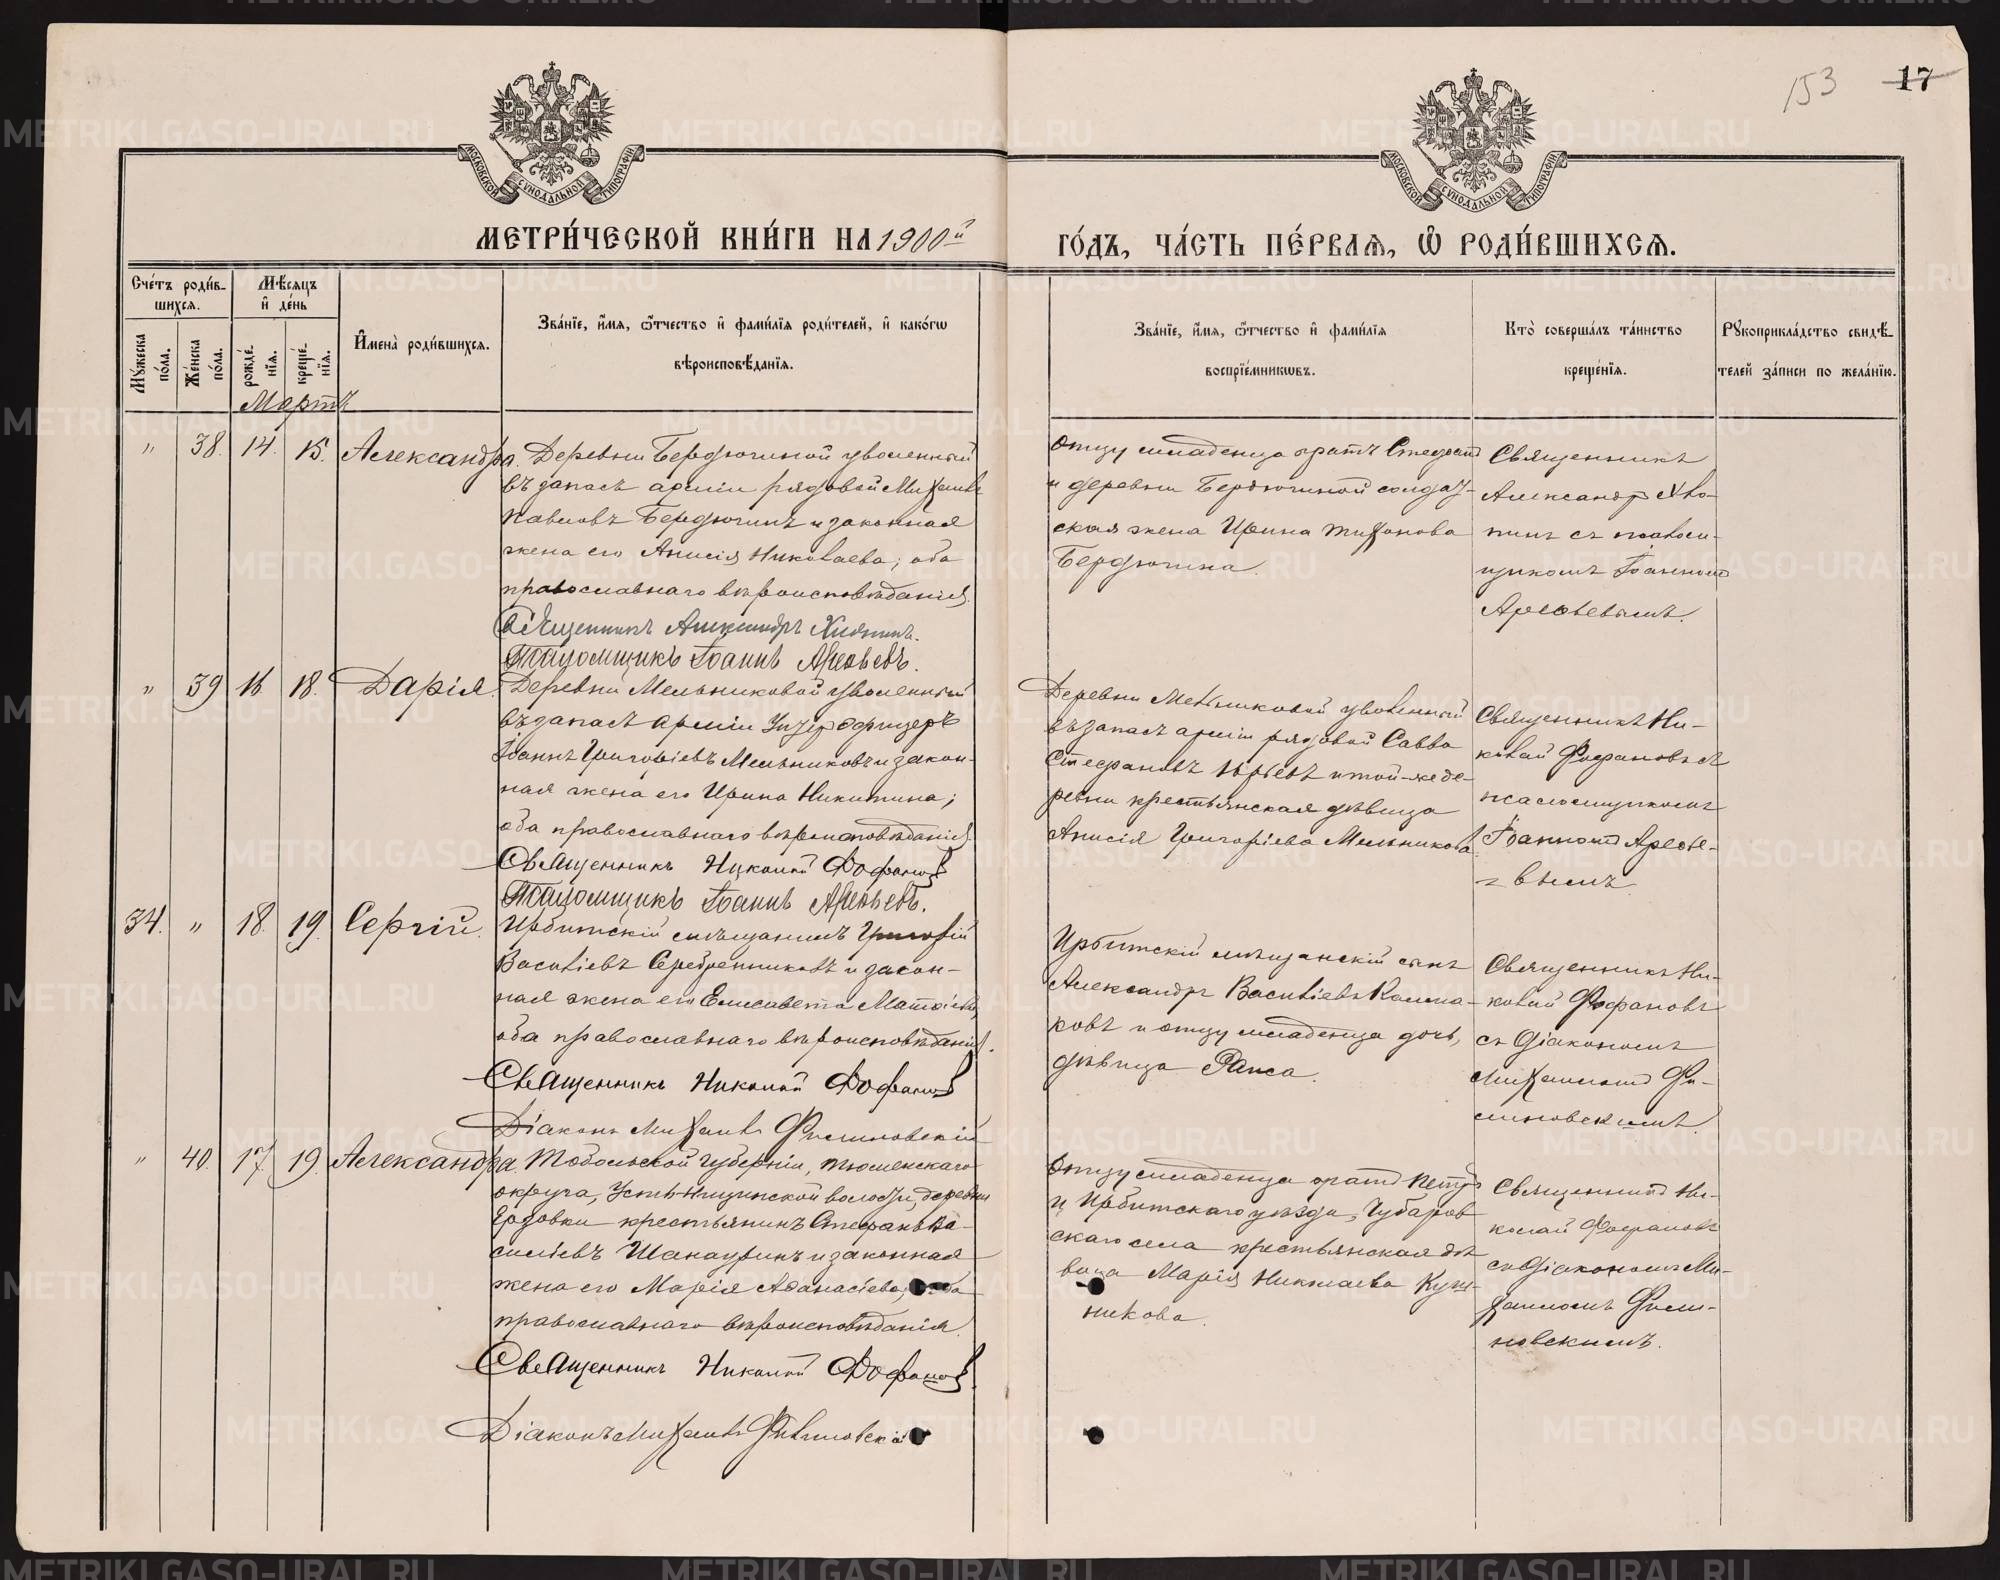 153
17
МЕТРИ́ЧЕСКОЙ КНИ́ГИ НА 1900й
ГО́ДЪ, ЧА́СТЬ ПЕ́РВАѦ, Ѡ РОДИ́ВШИХСѦ.
Сче́тъ роди́в-
шихсѧ.
Мѣ́сѧцъ
и де́нь
Мꙋ́жеска
по́ла.
Же́нска
по́ла.
рожде́-
нїѧ.
креще́-
нїѧ.
И҆мена̀ роди́вшихсѧ.
Зва́нїе, и҆́мѧ, ѻ҆́тчество и҆ фами́лїѧ роди́телей, и҆ како́гѡ
вѣроисповѣ́данїѧ.
Зва́нїе, и҆́мѧ, ѻ҆́тчество и҆ фами́лїѧ
воспрїе́мникѡвъ.
Кто̀ соверша́лъ та́инство
креще́нїѧ.
Рꙋкоприкла́дство свидѣ́-
телей за́писи по жела́нїю.
Мартъ
" 38. 14. 15. Александра.
Деревни Бердюгиной уволенный
въ запасъ арміи рядовой Михаилъ
Павловъ Бердюгинъ и законная
жена его Анисія Николаева; оба
православнаго вѣроисповѣданія.
Священникъ Александръ
Псаломщикъ Іоаннъ Арефьевъ.
Отцу младенца братъ Стефанъ
и деревни Бердюгиной солдат-
ская жена Ирина Тихонова
Бердюгина.
Священникъ
Александръ
съ псаломщ-
щикомъ Іоанномъ
Арефьевымъ.
" 39 16 18. Дарія.
Деревни Мельниковой уволенный
въ запасъ арміи Унтеръ офицеръ
Іоаннъ Григоріевъ Мельниковъ и закон-
ная жена его Ирина Никитина;
оба православнаго вѣроисповѣданія.
Священникъ Николай Фофановъ
Псаломщикъ Іоаннъ Арефьевъ.
Деревни Мельниковой уволенный
въ запасъ арміи рядовой Савва
Стефановъ Юрьевъ и той-же де-
ревни крестьянская дѣвица
Анисія Григоріева Мельникова.
Священникъ Ни-
колай Фофановъ съ
псаломщикомъ
Іоанномъ Арефье-
вымъ
34. " 18. 19. Сергій.
Ирбитскій мѣщанинъ Григорій
Васильевъ Серебренниковъ и закон-
ная жена его Елисавета Матѳіева,
оба православнаго вѣроисповѣданія.
Священникъ Николай Фофановъ
Діаконъ Михаилъ Филиновскій
Ирбитскій мѣщанскій сынъ
Александръ Васильевъ Колма-
ковъ и отцу младенца дочь,
дѣвица Раиса.
Священникъ Ни-
колай Фофановъ
съ Діакономъ
Михаиломъ Фи-
линовскимъ.
" 40. 17. 19. Александра.
Тобольской губерніи, Тюменскаго
округа, Усть-Ницинской волости, деревни
Ердовки крестьянинъ Стефанъ Ва-
сильевъ Шанауринъ и законная
жена его Марія Аѳанасіева; оба
православнаго вѣроисповѣданія.
Священникъ Николай Фофановъ.
Діаконъ Михаилъ Филиновскій
Отцу младенца братъ Петръ
и Ирбитскаго уѣзда, Чубаров
скаго села крестьянская дѣ
вица Марія Николаева Куз-
никова.
Священникъ Ни-
колай Фофановъ
съ Діакономъ Ми-
хаиломъ Фили-
новскимъ.